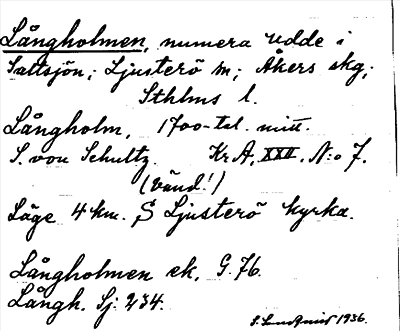 Långholmen, numera udde i
Saltsjön; Ljusterö sn; Åkers skg;
Sthlms l.
Långholm, 1700-tal. mitt.
S. von Schultz. Kr A, XXII, N:o 7.
(Vänd!)
Läge 4 km. S Ljusterö kyrka.
Långholmen ek, G. 76.
Långh. Sj. 234.
1936.